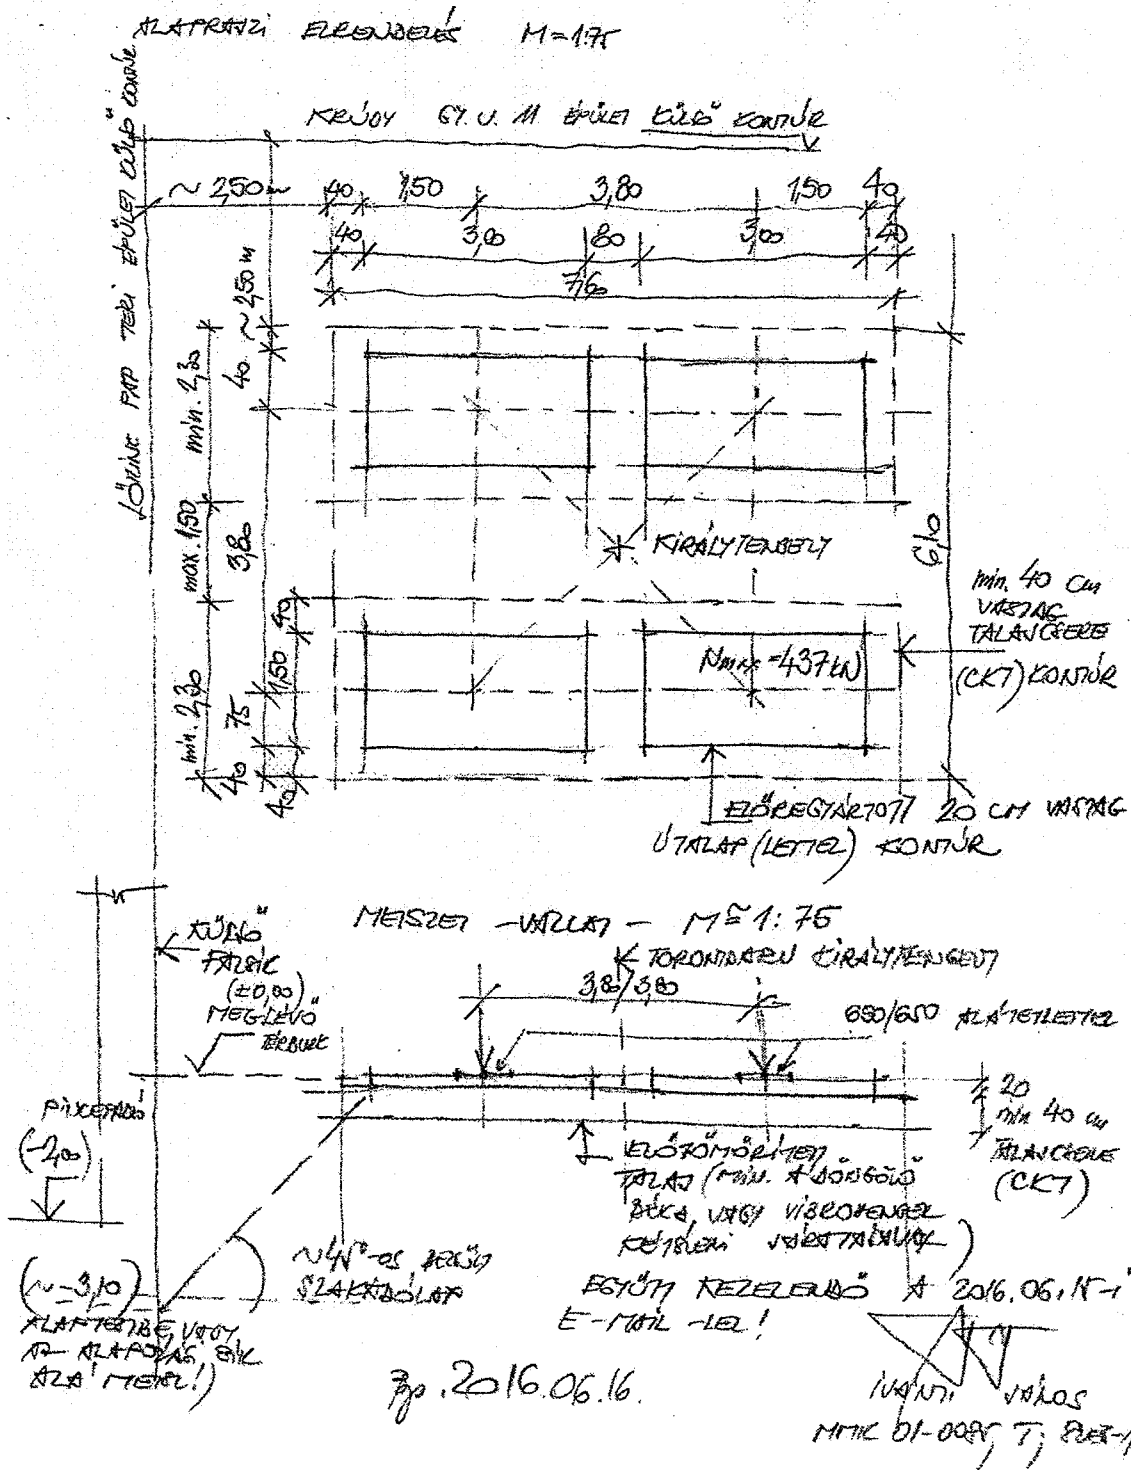 ALAPRAJZI ELRENDEZÉS M=1:75
KRÚDY GY. U. 11 ÉPÜLET KÜLSŐ KONTÚR
LŐRINC PAP TÉRI ÉPÜLET KÜLSŐ KONTÚR
~2,50 40 1,50 3,80 1,50 40
40 3,00 80 3,00 40
7,60
~2,50 m
40
min. 2,30
max. 1,50
3,80
min. 2,30
40
1,50
75
40
40
6,10
KIRÁLYTENGELY
Nmax=437 kN
min. 40 cm
VASTAG
TALAJCSERE
(CKT) KONTÚR
ELŐREGYÁRTOTT 20 CM VASTAG
ÚTALAP (LEMEZ) KONTÚR
METSZET -VÁZLAT- M≅1:75
KÜLSŐ
FALSÍK
(±0,00)
MEGLÉVŐ
TÉRBURK
TORONYDARU KIRÁLYTENGELY
3,80/3,80
650/650 ALÁTÉTLEMEZ
PINCEPADLÓ
(-2,00)
20
min 40 cm
TALAJCSERE
(CKT)
ELŐTÖMÖRÍTETT
TALAJ (MIN. A DÖNGÖLŐ
BÉKA, VAGY VIBROHENGER
KÉTSZERI JÁRATÁSÁVAL)
~45°-OS
SZAKADÓLAP
(~-3,10)
ALAPTESTBE, VAGY
AZ ALAPOZÁS SÍK
ALÁ METSZ!)
EGYÜTT KEZELENDŐ A 2016.06.15-i
E-MAIL-LEL!
Bp. 2016.06.16.
IVÁNYI JÁNOS
MMK 01-0085, T;